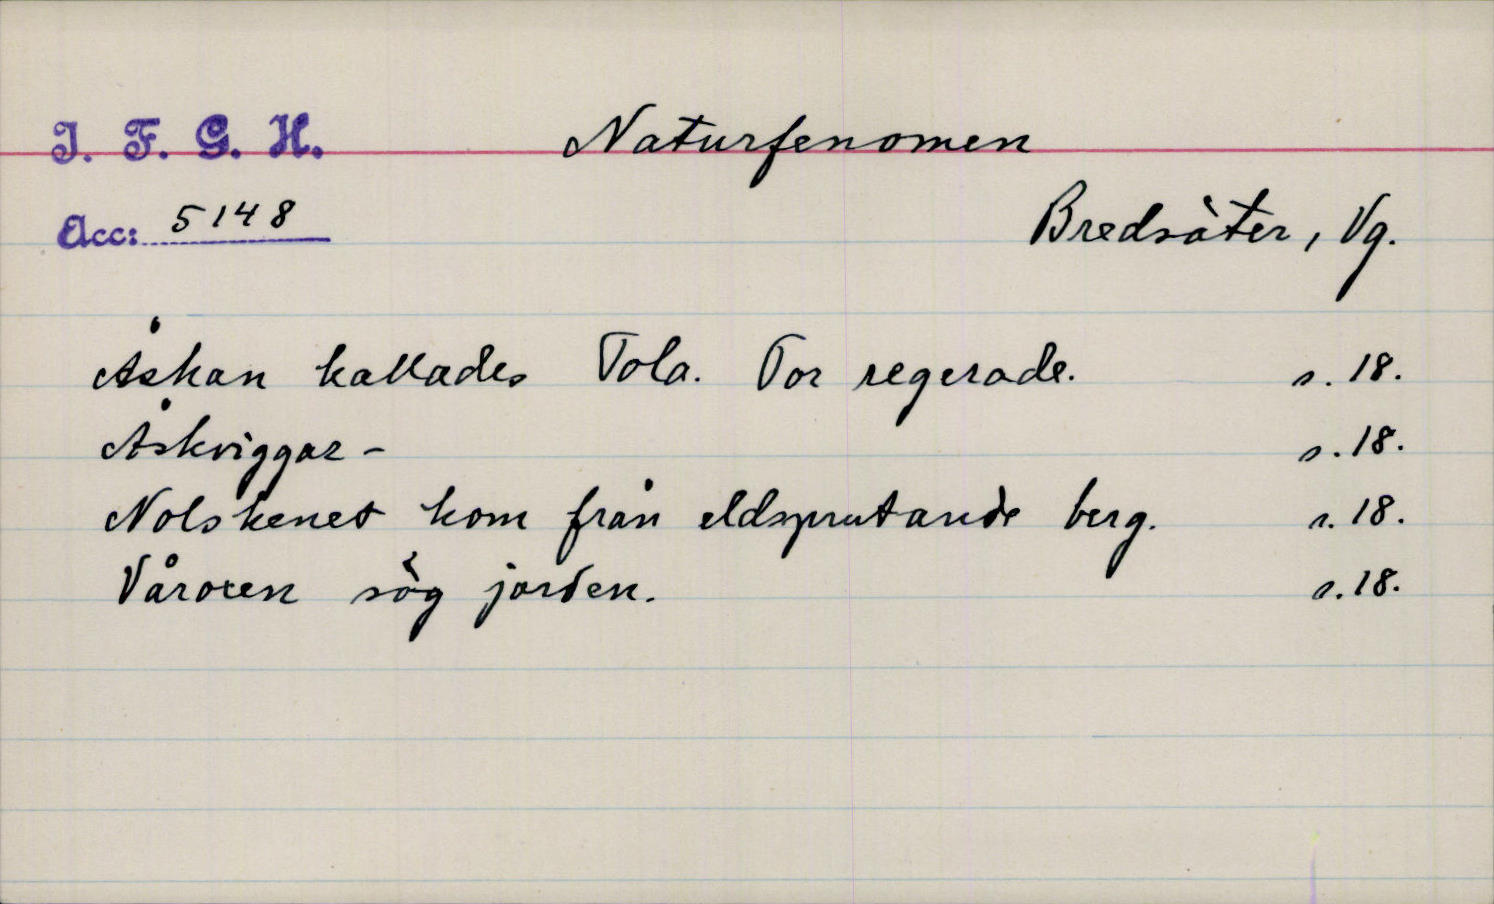 I. F. G. H. Naturfenomen
Acc: 5148 Bredsäter, Vg.
Åskan kallades Tola. Tor regerade. s. 18.
Åskviggar - s. 18.
Nolskenet kom från eldsprutande berg. s. 18.
Våroxen sög jorden. s. 18.